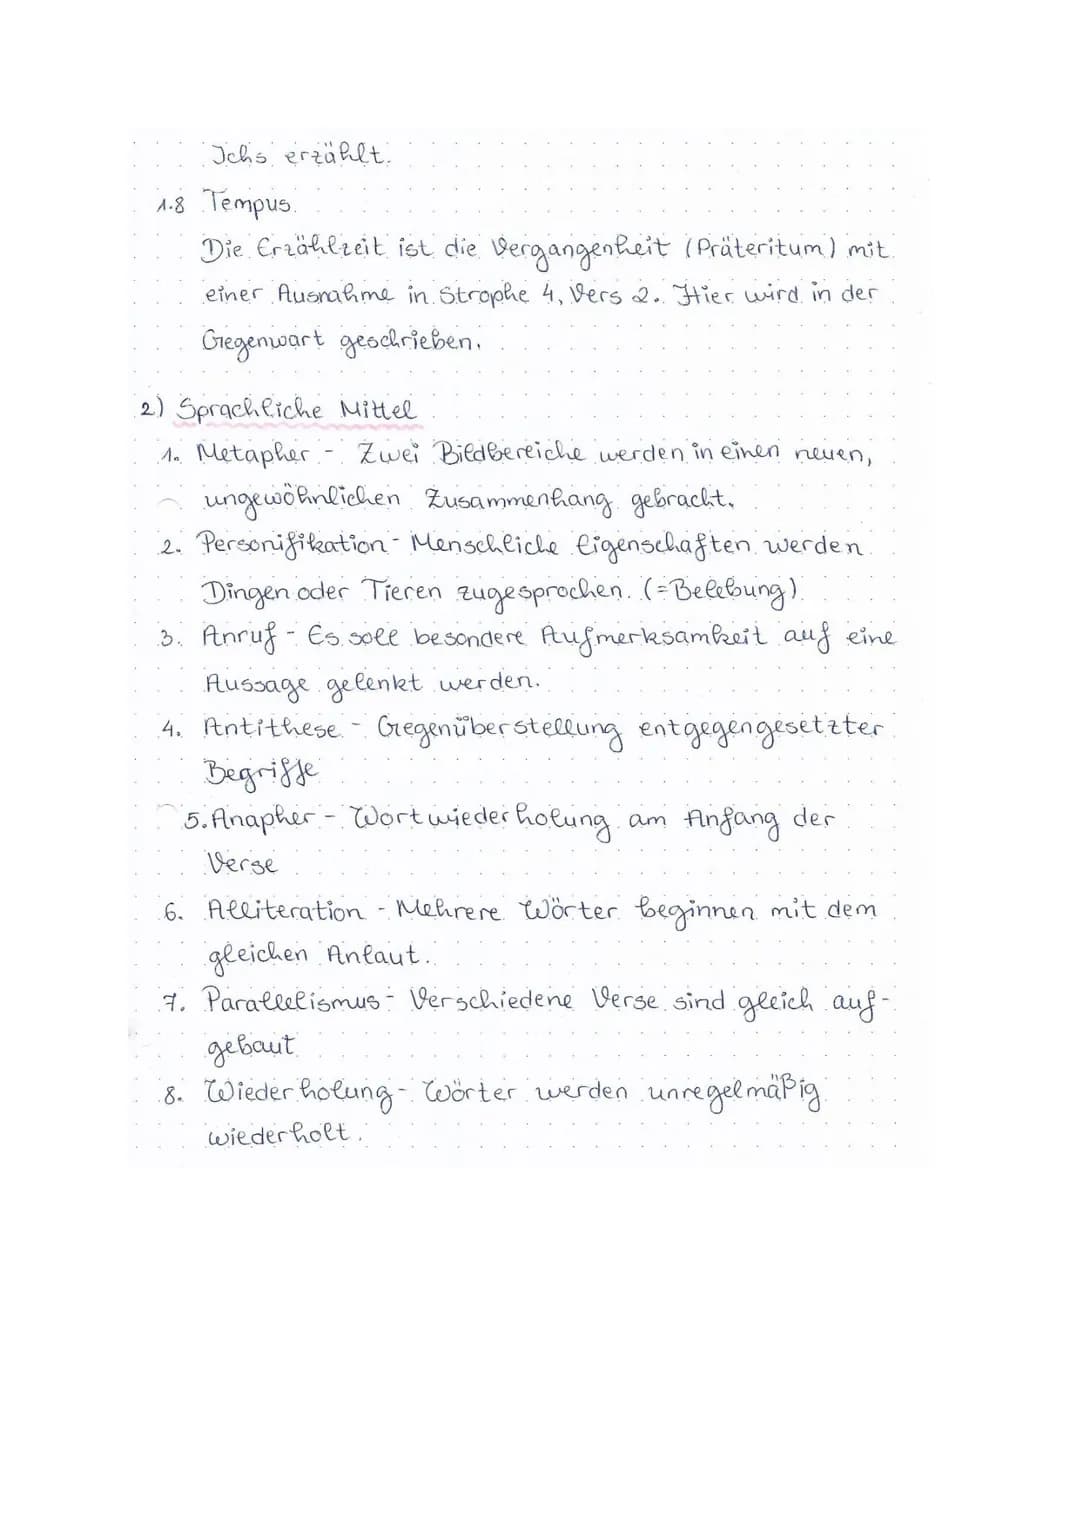 Ichs erzählt.
1.8 Tempus
Die Erzählzeit ist die Vergangenheit (Präteritum) mit
einer Ausnahme in Strophe 4, Vers 2. Hier wird in der
Gegenwart geschrieben.
2) Sprachliche Mittel
1. Metapher - Zwei Bildbereiche werden in einen neuen,
ungewöhnlichen Zusammenhang gebracht.
2. Personifikation - Menschliche Eigenschaften werden
Dingen oder Tieren zugesprochen. (=Belebung)
3. Anruf - Es soll besondere Aufmerksamkeit auf eine
Aussage gelenkt werden.
4. Antithese - Gegenüberstellung entgegengesetzter
Begriffe
5. Anapher - Wortwiederholung am Anfang der
Verse
6. Alliteration - Mehrere Wörter beginnen mit dem
gleichen Anlaut.
7. Parallelismus - Verschiedene Verse sind gleich auf-
gebaut
8. Wiederholung - Wörter werden unregelmäßig
wiederholt.